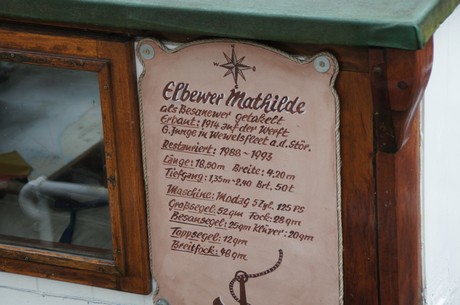 Elbewer Mathilde
als Besanewer getakelt
Erbaut: 1914 auf der Werft
G. Junge in Wewelsfleet a.d. Stör.
Restauriert: 1988 - 1993
Länge: 18,50m Breite: 4,20m
Tiefgang: 1,35m - 2,40 Brt. 50t
Maschine: Modag 5 Zyl. 125 PS
Großsegel: 52qm Fock: 28qm
Besansegel: 25qm Klüver: 20qm
Toppsegel: 12qm
Breitfock: 49qm